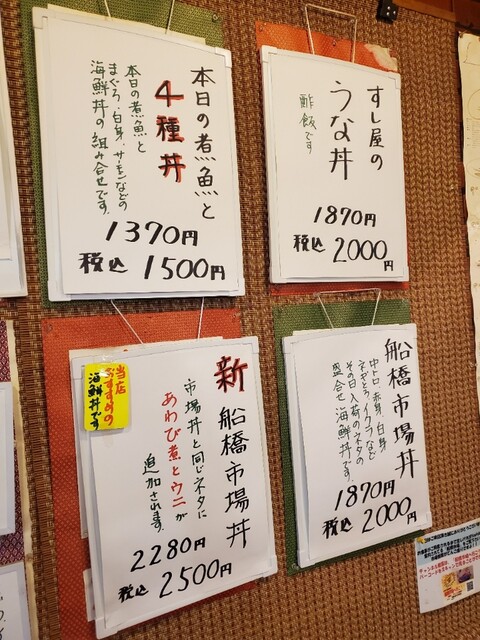 本日の煮魚と
4種丼
本日の煮魚と
まぐろ、白身、サーモンなどの
海鮮丼の組み合せです。
1370円
税込 1500円
すし屋の
うな丼
酢飯です
1870円
税込 2000円
新 船橋市場丼
当店
おすすめの
海鮮丼です
市場丼と同じネタに
あわび煮とウニが
追加されます。
2280円
税込 2500円
船橋市場丼
中トロ、赤身、白身
ネギとろ、イクラなど
その日入荷のネタの
盛合せ海鮮丼です。
1870円
税込 2000円